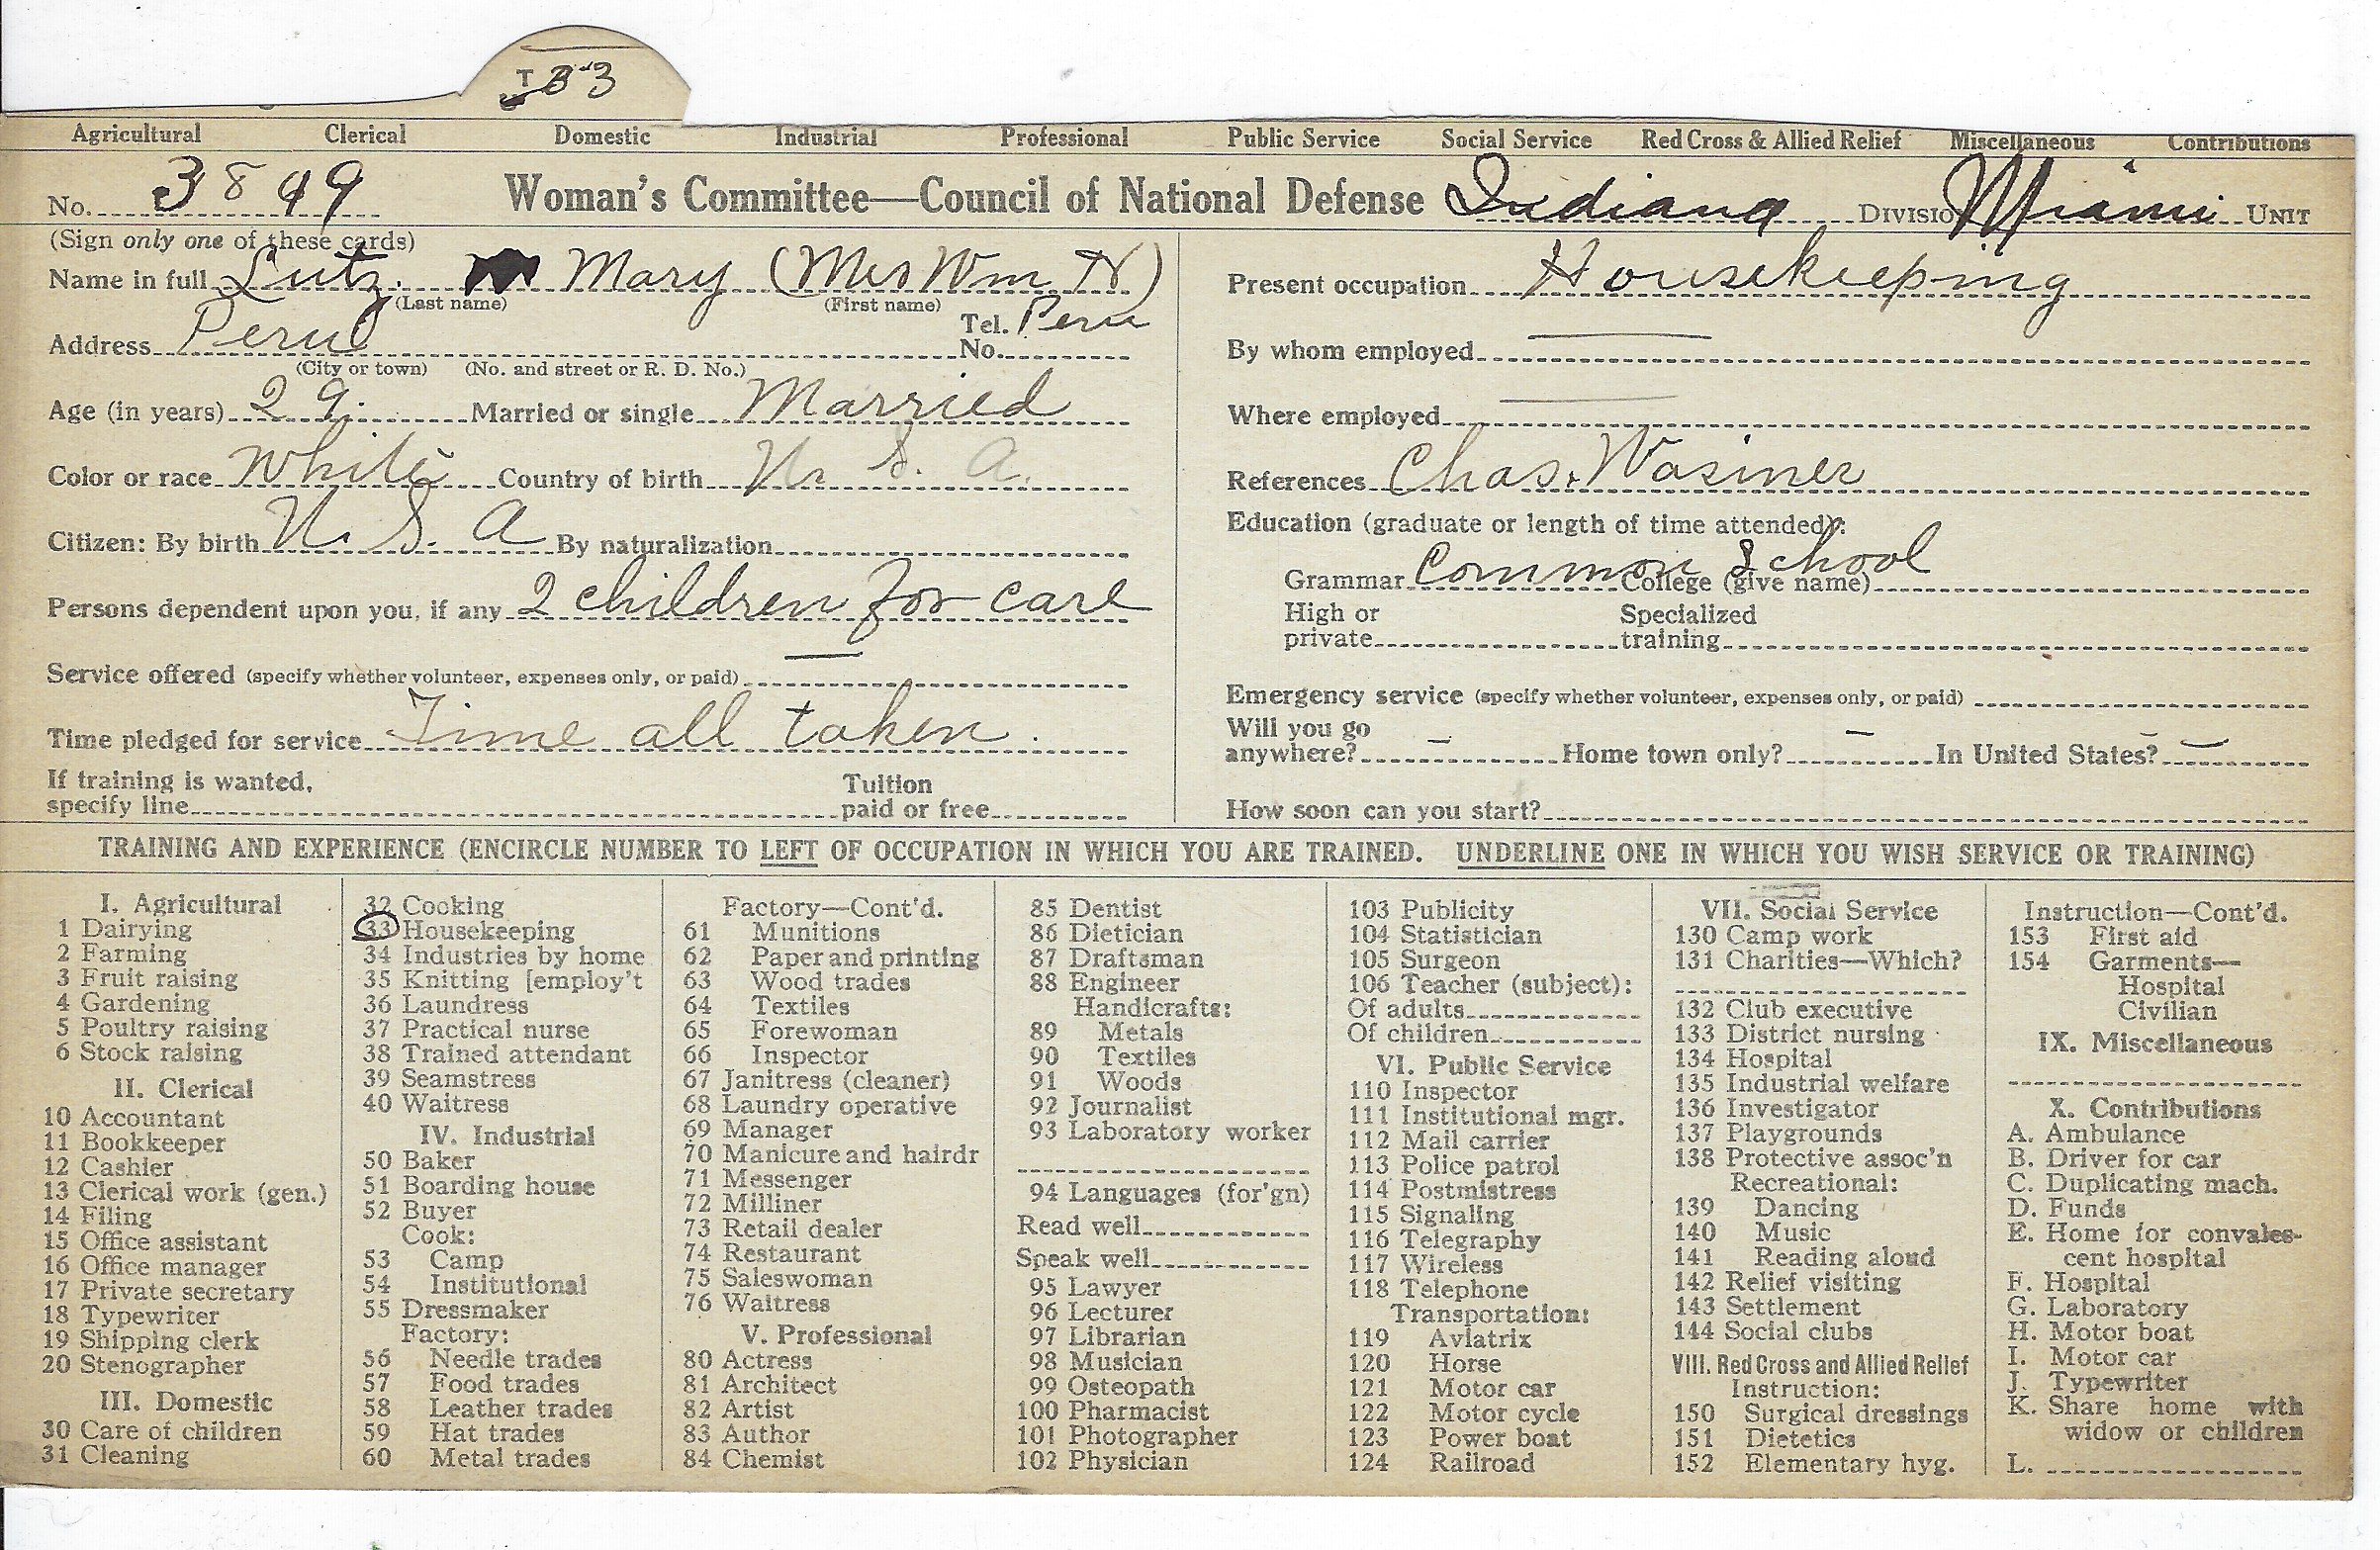 T 33
Agricultural Clerical Domestic Industrial Professional Public Service Social Service Red Cross & Allied Relief Miscellaneous Contributions
No. 3849 Woman's Committee—Council of National Defense Indiana DIVISIO Miami UNIT
(Sign only one of these cards)
Name in full Lutz. Mary (Mrs Wm. H)
(Last name) (First name)
Address Peru Tel. No. Peru
(City or town) (No. and street or R. D. No.)
Age (in years) 29. Married or single Married
Color or race White Country of birth U. S. A.
Citizen: By birth U. S. A By naturalization
Persons dependent upon you, if any 2 children for care
Service offered (specify whether volunteer, expenses only, or paid) —
Time pledged for service Time all taken.
If training is wanted, specify line Tuition paid or free
Present occupation Housekeeping
By whom employed —
Where employed —
References Chas. Wasmer
Education (graduate or length of time attended):
Grammar Common School College (give name)
High or private Specialized training
Emergency service (specify whether volunteer, expenses only, or paid)
Will you go anywhere? — Home town only? — In United States? —
How soon can you start?
TRAINING AND EXPERIENCE (ENCIRCLE NUMBER TO LEFT OF OCCUPATION IN WHICH YOU ARE TRAINED. UNDERLINE ONE IN WHICH YOU WISH SERVICE OR TRAINING)
I. Agricultural
1 Dairying
2 Farming
3 Fruit raising
4 Gardening
5 Poultry raising
6 Stock raising
II. Clerical
10 Accountant
11 Bookkeeper
12 Cashier
13 Clerical work (gen.)
14 Filing
15 Office assistant
16 Office manager
17 Private secretary
18 Typewriter
19 Shipping clerk
20 Stenographer
III. Domestic
30 Care of children
31 Cleaning
32 Cooking
33 Housekeeping
34 Industries by home
35 Knitting [employ't
36 Laundress
37 Practical nurse
38 Trained attendant
39 Seamstress
40 Waitress
IV. Industrial
50 Baker
51 Boarding house
52 Buyer
Cook:
53 Camp
54 Institutional
55 Dressmaker
Factory:
56 Needle trades
57 Food trades
58 Leather trades
59 Hat trades
60 Metal trades
Factory—Cont'd.
61 Munitions
62 Paper and printing
63 Wood trades
64 Textiles
65 Forewoman
66 Inspector
67 Janitress (cleaner)
68 Laundry operative
69 Manager
70 Manicure and hairdr
71 Messenger
72 Milliner
73 Retail dealer
74 Restaurant
75 Saleswoman
76 Waitress
V. Professional
80 Actress
81 Architect
82 Artist
83 Author
84 Chemist
85 Dentist
86 Dietician
87 Draftsman
88 Engineer
Handicrafts:
89 Metals
90 Textiles
91 Woods
92 Journalist
93 Laboratory worker
94 Languages (for'gn)
Read well
Speak well
95 Lawyer
96 Lecturer
97 Librarian
98 Musician
99 Osteopath
100 Pharmacist
101 Photographer
102 Physician
103 Publicity
104 Statistician
105 Surgeon
106 Teacher (subject):
Of adults
Of children
VI. Public Service
110 Inspector
111 Institutional mgr.
112 Mail carrier
113 Police patrol
114 Postmistress
115 Signaling
116 Telegraphy
117 Wireless
118 Telephone
Transportation:
119 Aviatrix
120 Horse
121 Motor car
122 Motor cycle
123 Power boat
124 Railroad
VII. Social Service
130 Camp work
131 Charities—Which?
132 Club executive
133 District nursing
134 Hospital
135 Industrial welfare
136 Investigator
137 Playgrounds
138 Protective assoc'n
Recreational:
139 Dancing
140 Music
141 Reading aloud
142 Relief visiting
143 Settlement
144 Social clubs
VIII. Red Cross and Allied Relief
Instruction:
150 Surgical dressings
151 Dietetics
152 Elementary hyg.
Instruction—Cont'd.
153 First aid
154 Garments—
Hospital
Civilian
IX. Miscellaneous
X. Contributions
A. Ambulance
B. Driver for car
C. Duplicating mach.
D. Funds
E. Home for convales-
cent hospital
F. Hospital
G. Laboratory
H. Motor boat
I. Motor car
J. Typewriter
K. Share home with
widow or children
L.